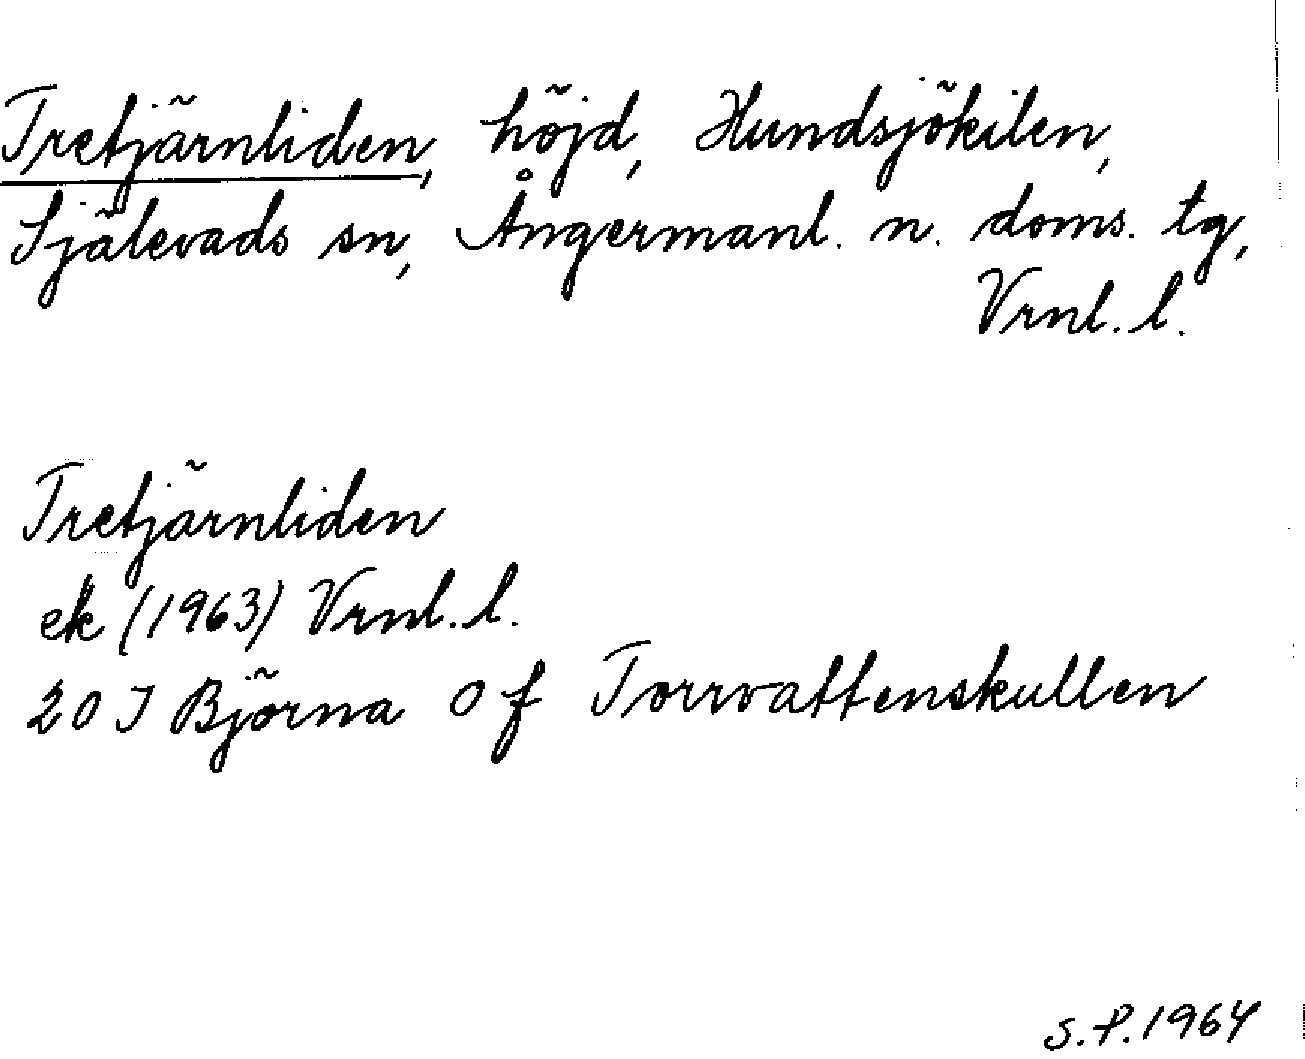 Tretjärnliden, höjd, Hundsjökilen,
Själevads sn, Ångermanl. n. doms. tg,
Vrnl. l.
Tretjärnliden
ek (1963) Vrnl. l.
20 J Björna O f Torrvattenskullen
S.P. 1964